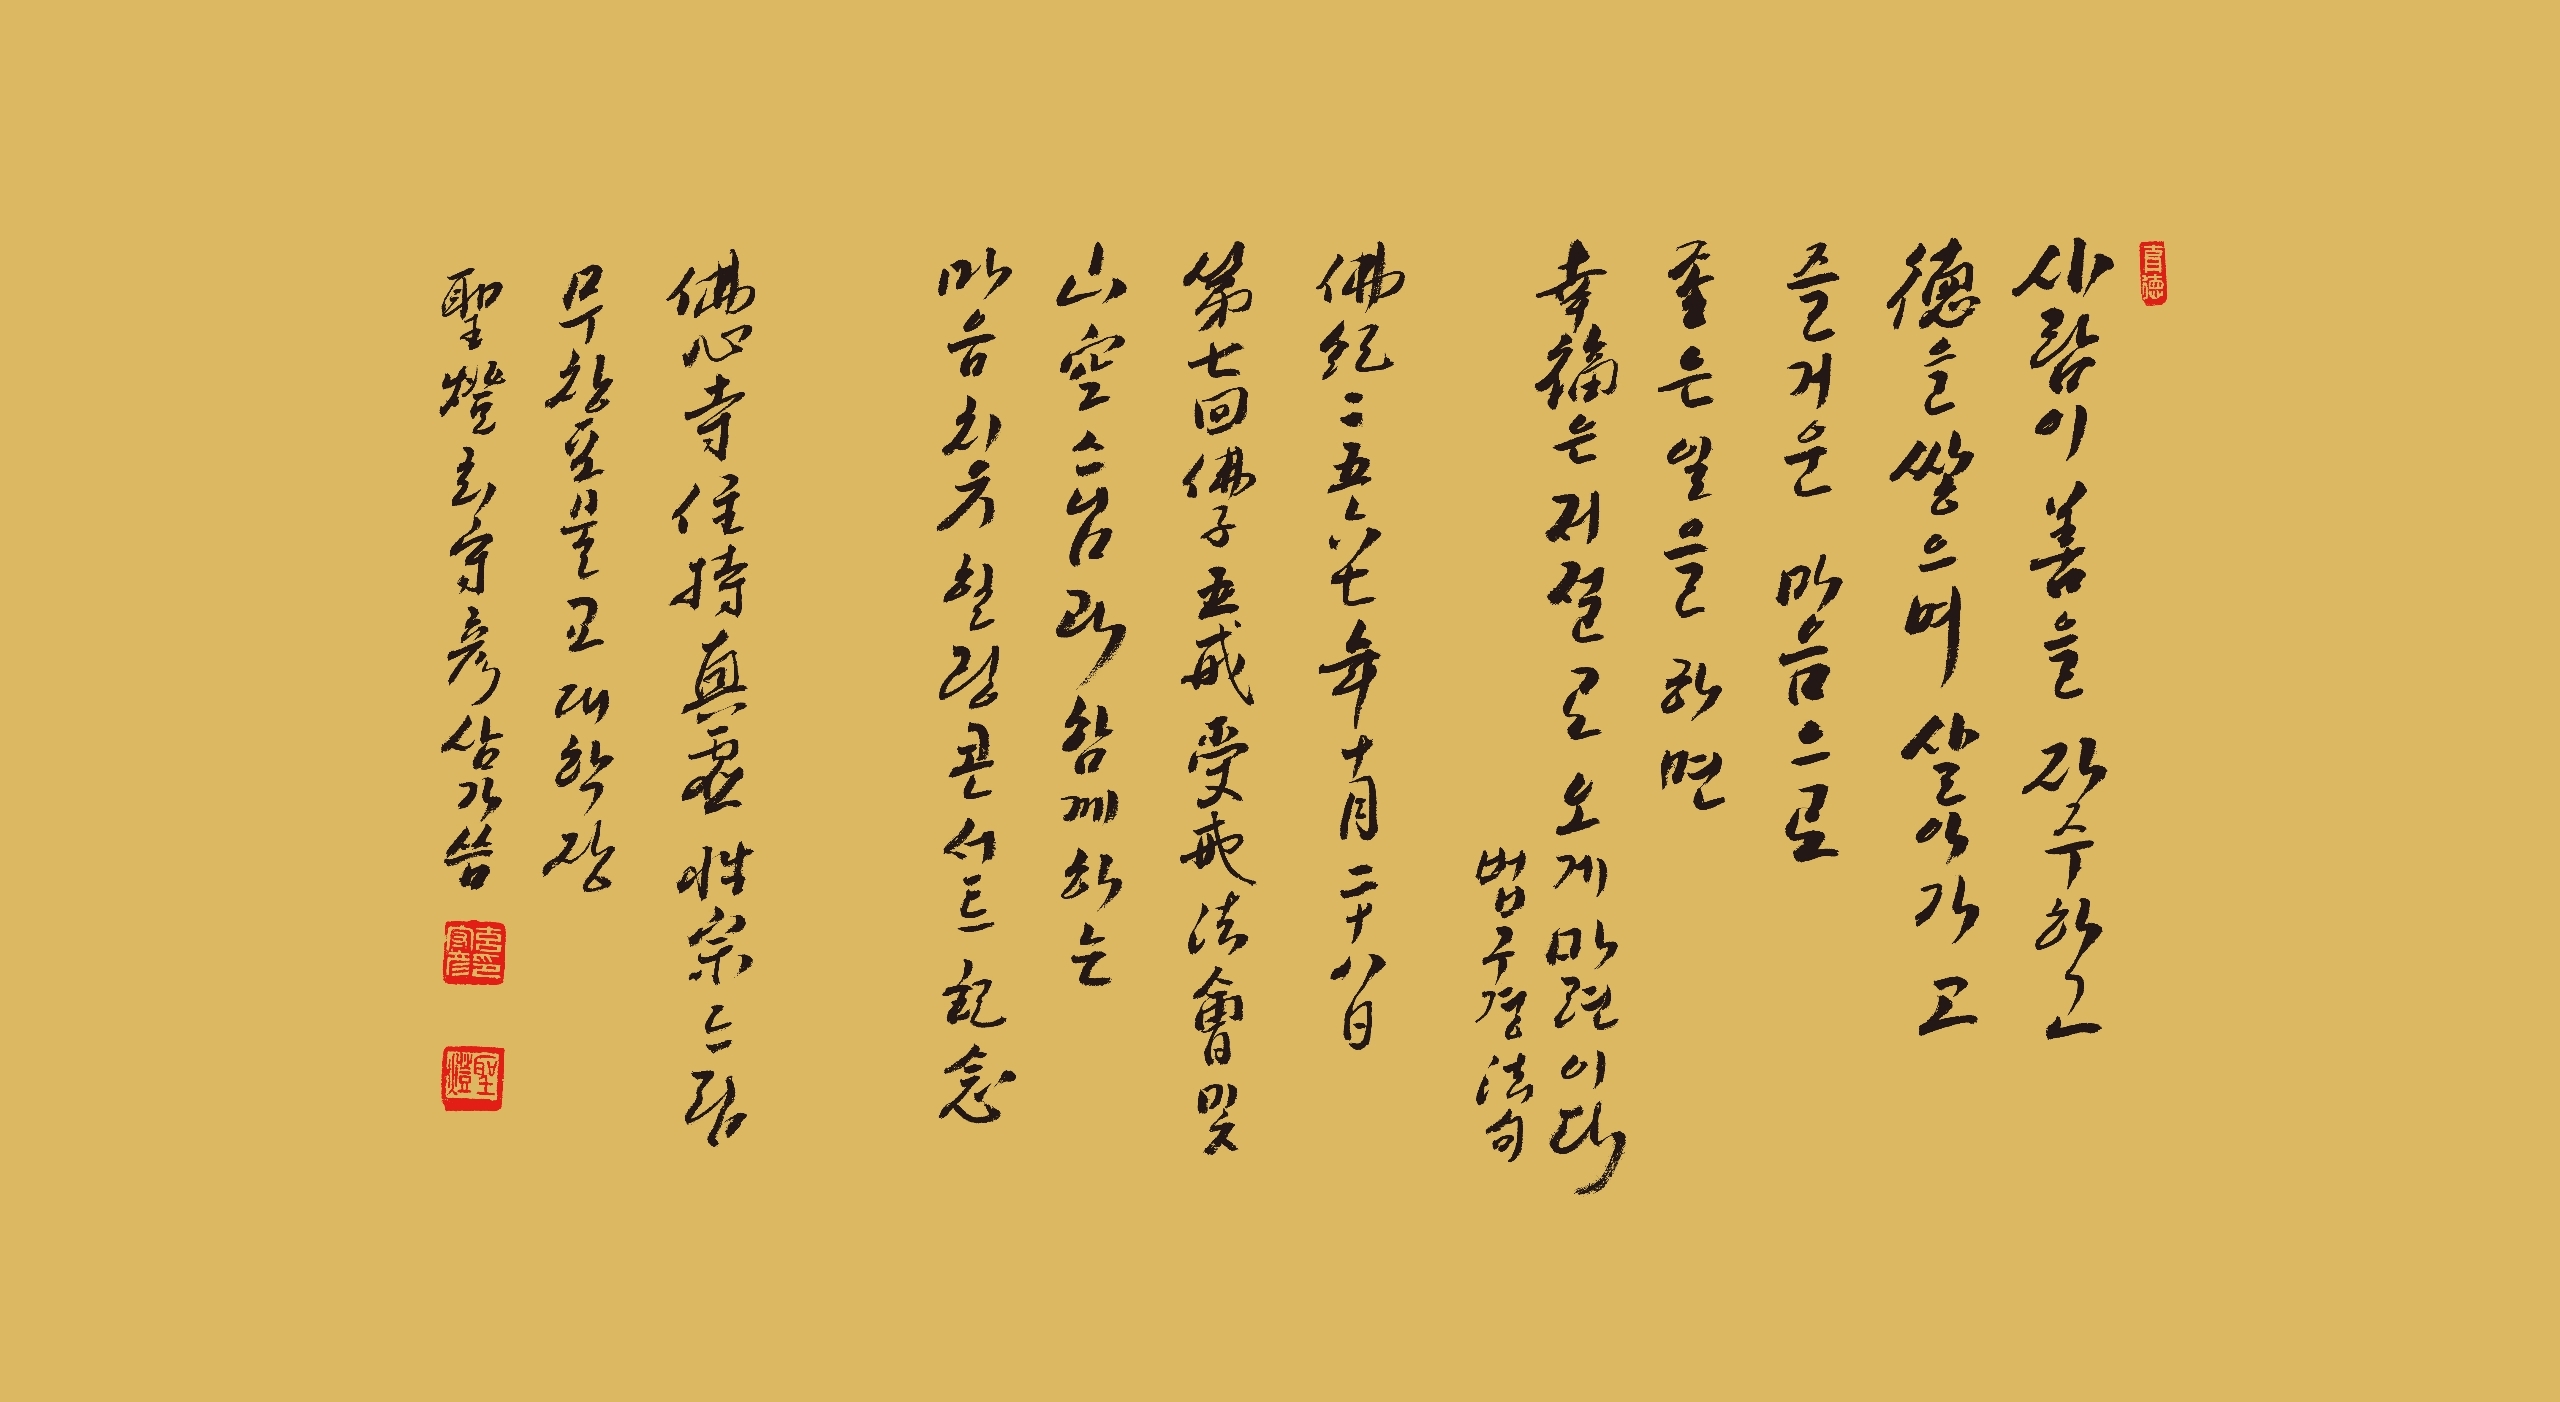 사람이 善을 자주하고
德을 쌓으며 살아가고
즐거운 마음으로
좋은 일을 하면
幸福은 저절로 오게 마련이다
범구경 法句
佛紀二五六七年 十月二十八日
第七回 佛子 五戒 受戒法會 및
山空스님과 함께하는
마음치유 힐링콘서트 記念
佛心寺 住持 真虛 性宗스님
무창포불교대학장
聖燈 玄守彦 삼가 씀
聖燈